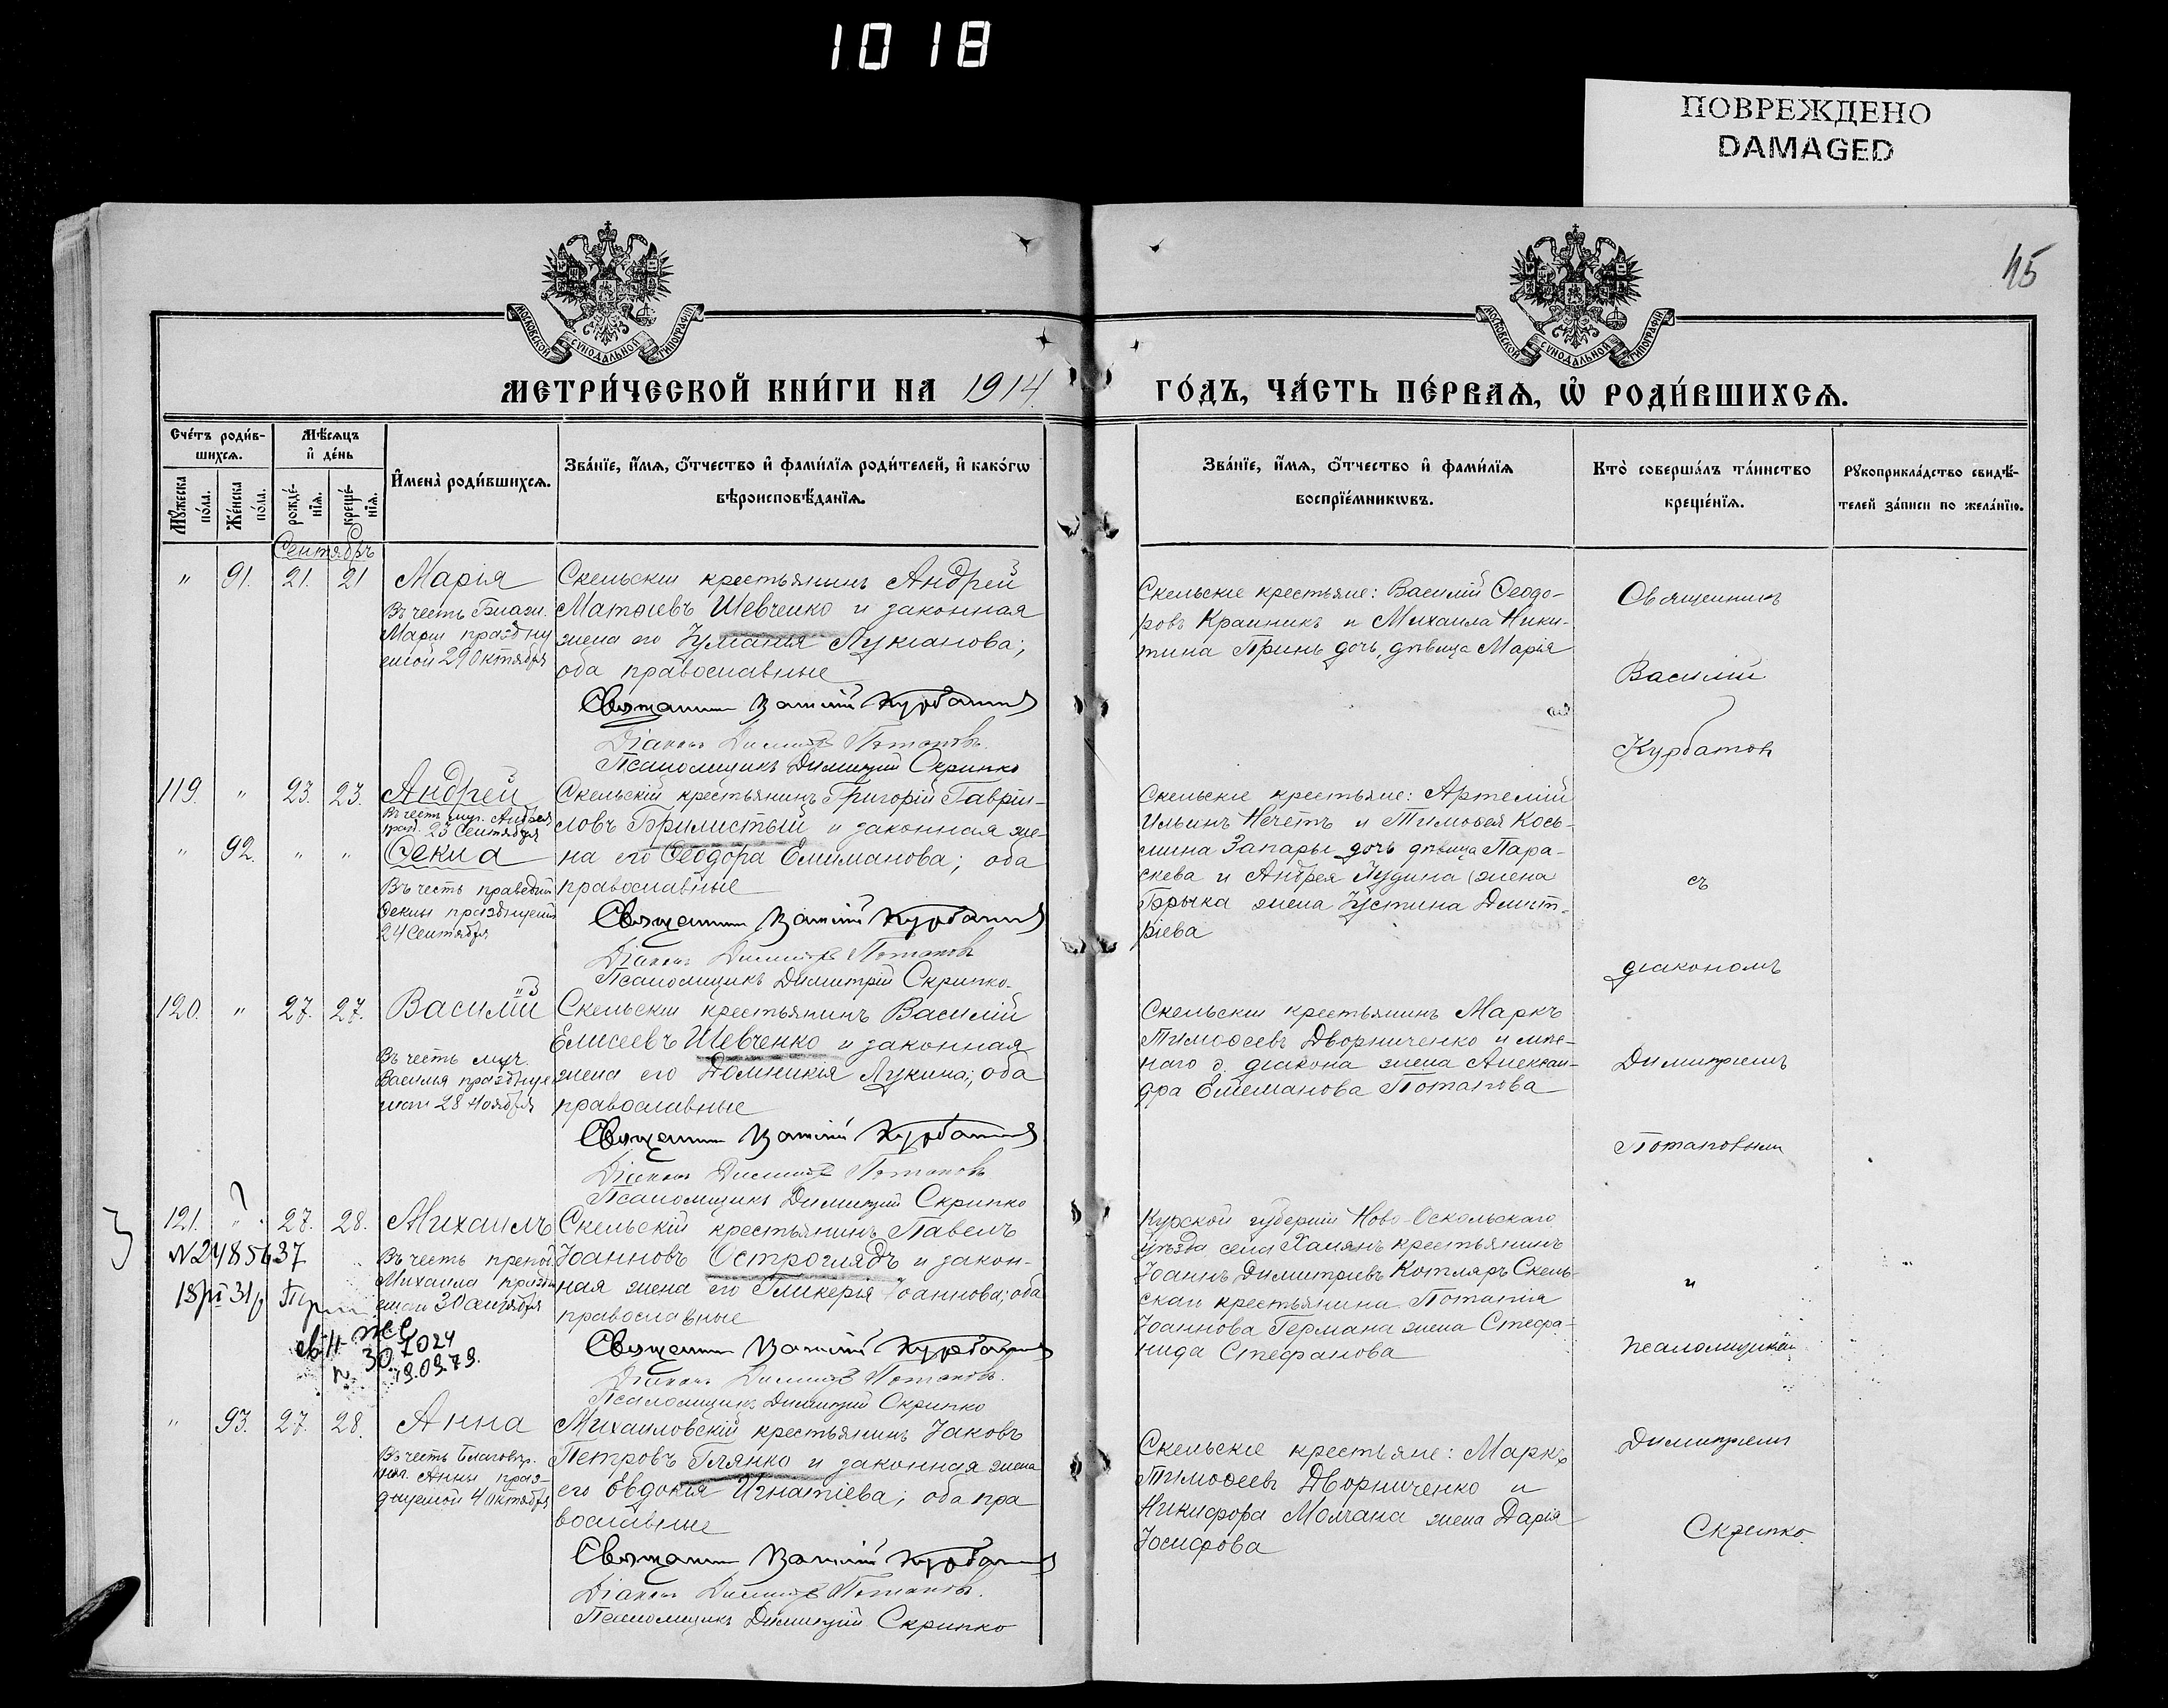 1018
ПОВРЕЖДЕНО
DAMAGED
45
МОСКОВСКОЙ СѴНОДАЛЬНОЙ ТИПОГРАФІИ
МОСКОВСКОЙ СѴНОДАЛЬНОЙ ТИПОГРАФІИ
МЕТРИ́ЧЕСКОЙ КНИ́ГИ НА 1914
ГО́ДЪ, ЧА́СТЬ ПЕ́РВАѦ, Ѡ҆ РОДИ́ВШИХСѦ.
Сче́тъ роди́в-
шихсѧ.
Мѣ́сѧцъ
и҆ де́нь
Мꙋ́жеска
по́ла.
Же́нска
по́ла.
рожде́-
нїѧ.
креще́-
нїѧ.
И҆мена̀ роди́вшихсѧ.
Зва́нїе, и҆́мѧ, ѻ҆́тчество и҆ фами́лїѧ роди́телей, и҆ како́гѡ
вѣроисповѣ́данїѧ.
Зва́нїе, и҆́мѧ, ѻ҆́тчество и҆ фами́лїѧ
воспрїе́мникѡвъ.
Кто̀ соверша́лъ та́инство
креще́нїѧ.
Рꙋкоприкла́дство свидѣ́-
телей за́писи по жела́нїю.
Сентябрь
" 91. 21. 21 Марія
Въ честь Благов.
Маріи праздну
емой 29 Октября
Скельскій крестьянинъ Андрей
Матѳіевъ Шевченко и законная
жена его Іуліанія Лукіанова;
оба православные
Священникъ Василій Курбатовъ
Діаконъ Димитрій Потаповъ
Псаломщикъ Димитрій Скрипко
Скельскіе крестьяне: Василій Ѳеодо-
ровъ Крайникъ и Михаила Ники-
тина Принь дочь, дѣвица Марія
Священникъ
Василій
Курбатовъ
119. " 23. 23. Андрей
Въ честь муч. Андрея
празд. 23 Сентября
" 92. " " Ѳекла
Въ честь праведн
Ѳеклы празднуемой
24 Сентября
Скельскій крестьянинъ Григорій Гавріи-
ловъ Брилистый и законная же-
на его Ѳеодора Емиліанова; оба
православные
Священникъ Василій Курбатовъ
Діаконъ Димитрій Потаповъ
Псаломщикъ Димитрій Скрипко.
Скельскіе крестьяне: Артемій
Ильинъ Нечетъ и Тимоѳея Кось-
мина Запары дочь дѣвица Пара-
скева и Андрея Іудина (жена
Брыка жена Іустина Димит-
ріева
съ
діакономъ
120. " 27. 27. Василій
Въ честь муч.
Василія празднуе
маго 28 Ноября
Скельскій крестьянинъ Василій
Елисеевъ Шевченко и законная
жена его Домникія Лукина; оба
православные
Священникъ Василій Курбатовъ
Діаконъ Димитрій Потаповъ
Псаломщикъ Димитрій Скрипко
Скельскій крестьянинъ Маркъ
Тимоѳеевъ Дворниченко и мѣс-
наго о. діакона жена Алексан-
дра Емиліанова Потапова
Димитріемъ
Потаповымъ
121. " 27. 28. Михаилъ
№2485637
Въ честь препод
Михаила праздн
Скельскій крестьянинъ Павелъ
Іоанновъ Остроглядъ и закон-
ная жена его Гликерія Іоаннова; оба
православные
Священникъ Василій Курбатовъ
Діаконъ Димитрій Потаповъ.
Псаломщикъ Димитрій Скрипко
Курской губерніи Ново-Оскольскаго
уѣзда села Халянъ крестьянинъ
Іоаннъ Димитріевъ Котляръ Скель-
скаго крестьянина Потапія
Іоаннова Германа жена Стефа-
нида Стефанова
и
псаломщикомъ
" 93. 27. 28. Анна
Въ честь Благовѣр.
кн. Анны праз-
днуемой 4 октября
Михайловскій крестьянинъ Іаковъ
Петровъ Глянко и законная жена
его Евдокія Игнатіева; оба пра
вославные
Священникъ Василій Курбатовъ
Діаконъ Димитрій Потаповъ.
Псаломщикъ Димитрій Скрипко
Скельскіе крестьяне: Маркъ
Тимоѳеевъ Дворниченко и
Никифора Молчана жена Дарія
Іосифова
Димитріемъ
Скрипко.